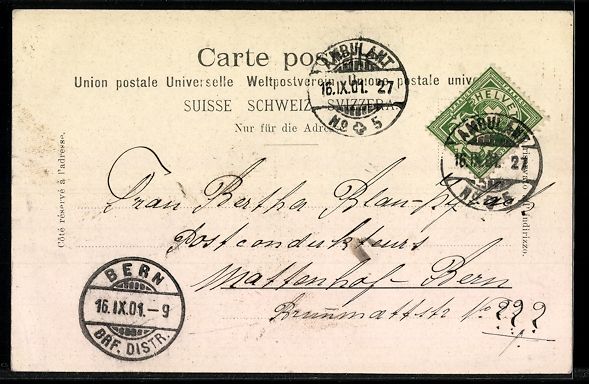 Carte pos
Union postale Universelle Weltpostverein Unione postale univ
SUISSE SCHWEIZ SVIZZERA
Nur für die Adre
Côté réservé à l'adresse.
AMBULANT
16.IX.01. 27
No 5
HELVE
AMBULANT
16.IX.01. 27
No
l'indirizzo.
Frau Bertha Blau-
Postcondukteurs
Mattenhof-Bern
Brunnmattstr No ???
BERN
16.IX.01.-9
BRF. DISTR.